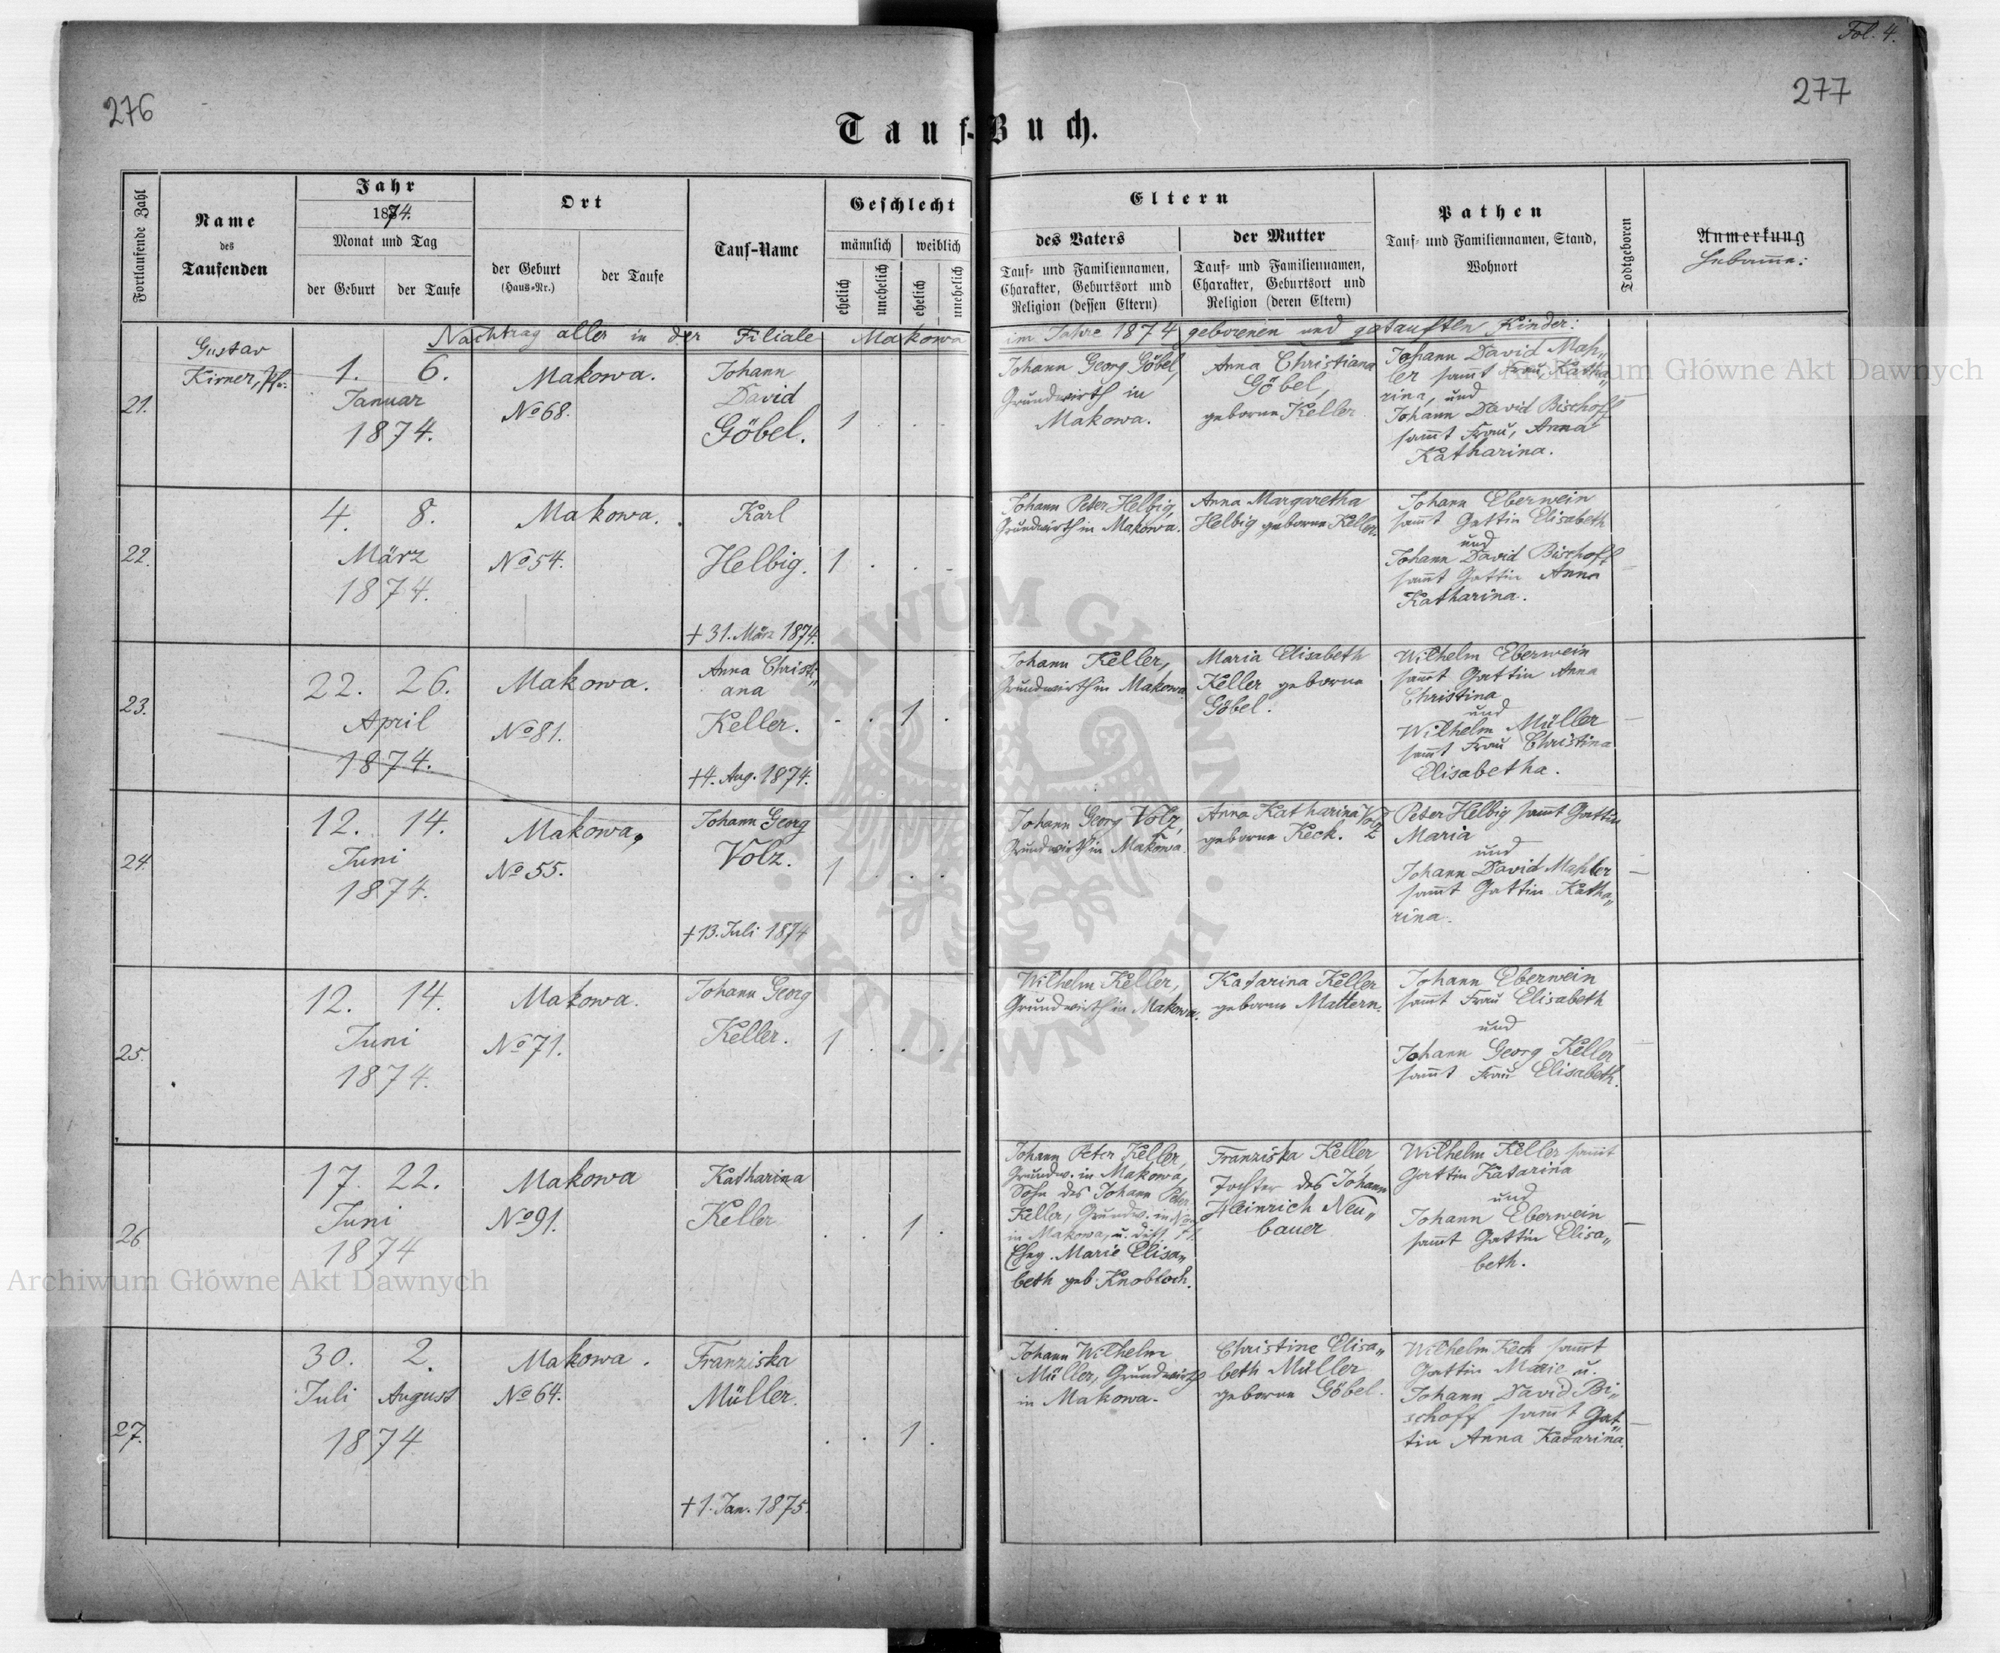 Fol. 4.
276
277
Tauf-Buch.
Fortlaufende Zahl
Name
des
Taufenden
Jahr
1874.
Monat und Tag
der Geburt
der Taufe
Ort
der Geburt
(Haus-Nr.)
der Taufe
Tauf-Name
Geschlecht
männlich
weiblich
ehelich
unehelich
ehelich
unehelich
Eltern
des Vaters
Tauf- und Familiennamen,
Charakter, Geburtsort und
Religion (dessen Eltern)
der Mutter
Tauf- und Familiennamen,
Charakter, Geburtsort und
Religion (deren Eltern)
Pathen
Tauf- und Familiennamen, Stand,
Wohnort
Todtgeboren
Anmerkung
Hebamme:
Nachtrag aller in der Filiale Makowa im Jahre 1874 geborenen und getauften Kinder:
21.
Gustav
Kirner, Pfr.
1. 6.
Januar
1874.
Makowa.
No 68.
Johann
David
Göbel.
1 . . .
Johann Georg Göbel,
Grundwirth in
Makowa.
Anna Christiana
Göbel,
geborne Keller.
Johann David Mah„
ler sammt Frau, Katha„
rina, und
Johann David Bischoff
sammt Frau, Anna
Katharina.
22.
4. 8.
März
1874.
Makowa.
No 54.
Karl
Helbig.
+ 31. März 1874.
1 . . .
Johann Peter Helbig,
Grundwirth in Makowa.
Anna Margaretha
Helbig geborne Keller.
Johann Eberwein
sammt Gattin Elisabeth
und
Johann David Bischoff
sammt Gattin Anna
Katharina.
23.
22. 26.
April
1874.
Makowa.
No 81.
Anna Christi„
ana
Keller.
+ 4. Aug. 1874.
. . 1 .
Johann Keller,
Grundwirth in Makowa
Maria Elisabeth
Keller geborne
Göbel.
Wilhelm Eberwein
sammt Gattin Anna
Christina
und
Wilhelm Müller
sammt Frau Christina
Elisabetha.
24.
12. 14.
Juni
1874.
Makowa.
No 55.
Johann Georg
Volz.
+ 13. Juli 1874
1 . . .
Johann Georg Volz,
Grundwirth in Makowa
Anna Katharina Volz
geborne Keck.
Peter Helbig sammt Gattin
Maria
und
Johann David Mahler
sammt Gattin Katha„
rina.
25.
12. 14.
Juni
1874.
Makowa.
No 71.
Johann Georg
Keller.
1 . . .
Wilhelm Keller,
Grundwirth in Makowa.
Katarina Keller
geborne Mattern.
Johann Eberwein
sammt Frau Elisabeth
und
Johann Georg Keller
sammt Frau Elisabeth.
26.
17. 22.
Juni
1874
Makowa
No 91.
Katharina
Keller
. . 1 .
Johann Peter Keller,
Grundw. in Makowa,
Sohn des Johann Peter
Keller, Grundw. in
in Makowa, u.
Eheg. Marie Elisa„
beth geb. Knobloch.
Franziska Keller
Tochter des Johann
Heinrich Neu„
bauer
Wilhelm Keller sammt
Gattin Katarina
und
Johann Eberwein
sammt Gattin Elisa„
beth.
27.
30. 2.
Juli August
1874
Makowa.
No 64.
Franziska
Müller.
+ 1. Jan. 1875.
. . 1 .
Johann Wilhelm
Müller, Grundwirth
in Makowa.
Christine Elisa„
beth Müller
geborne Göbel.
Wilhelm Keck sammt
Gattin Marie u.
Johann David Bi„
schoff sammt Gat„
tin Anna Katarina.
Archiwum Główne Akt Dawnych
Archiwum Główne Akt Dawnych
ARCHIWUM GŁÓWNE AKT DAWNYCH